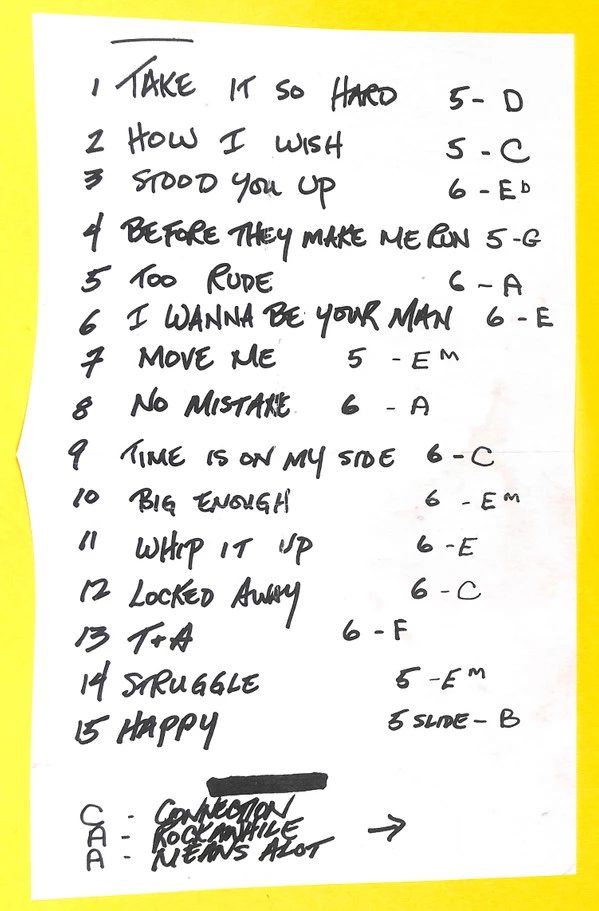 1 TAKE IT SO HARD 5 - D
2 HOW I WISH 5 - C
3 STOOD YOU UP 6 - Eb
4 BEFORE THEY MAKE ME RUN 5 - G
5 TOO RUDE 6 - A
6 I WANNA BE YOUR MAN 6 - E
7 MOVE ME 5 - EM
8 NO MISTAKE 6 - A
9 TIME IS ON MY SIDE 6 - C
10 BIG ENOUGH 6 - EM
11 WHIP IT UP 6 - E
12 LOCKED AWAY 6 - C
13 T+A 6 - F
14 STRUGGLE 5 - EM
15 HAPPY 5 SLIDE - B
C - CONNECTION
A - ROCKAWHILE →
A - MEANS ALOT